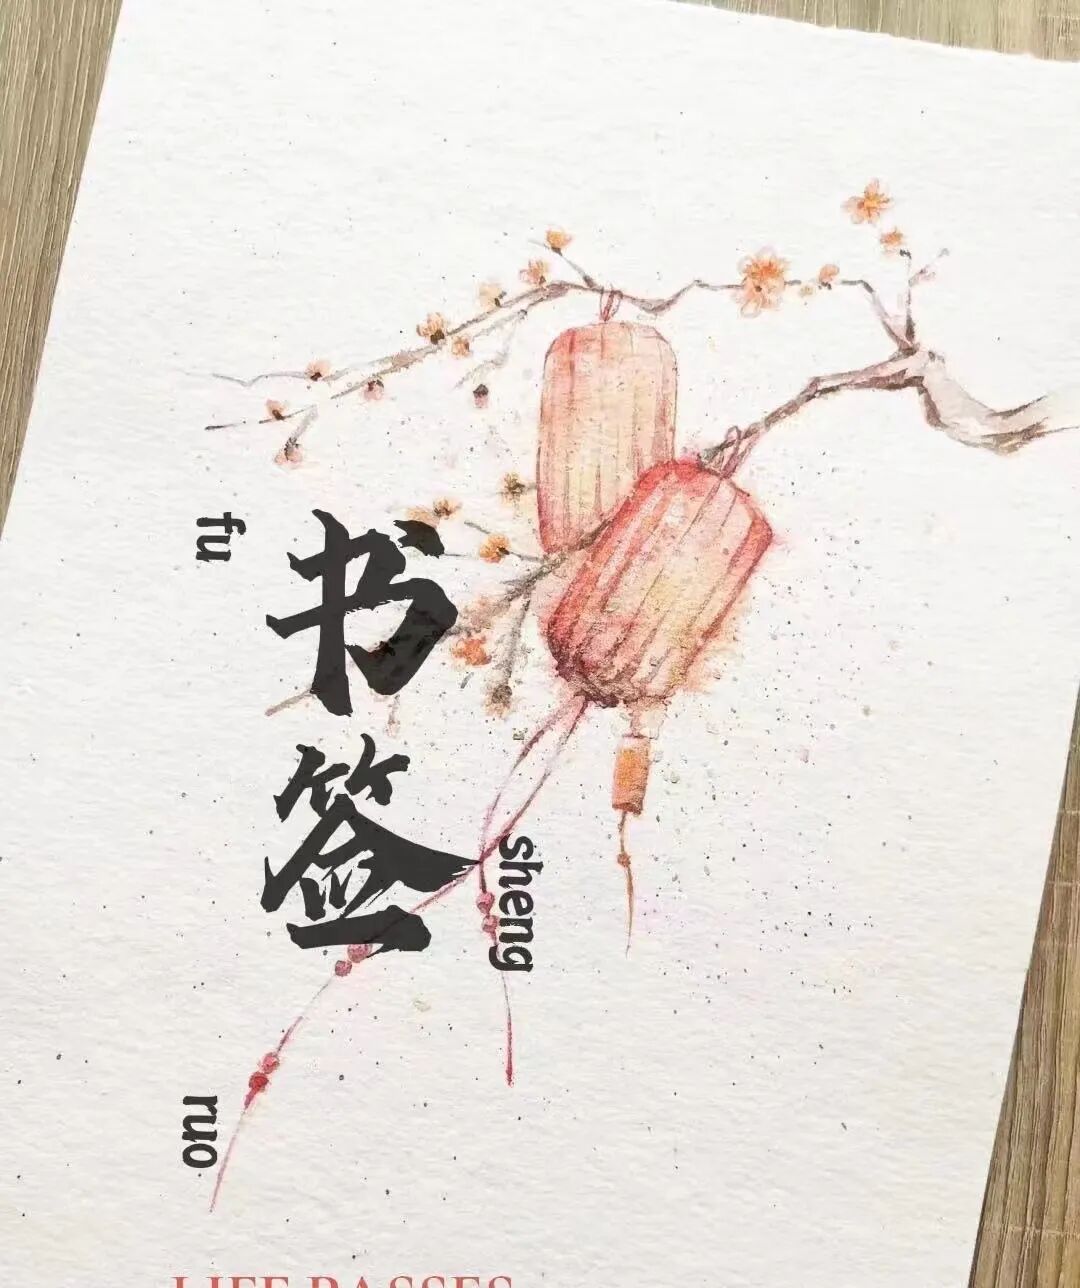 书签
fu
sheng
ruo
LIFE PASSES